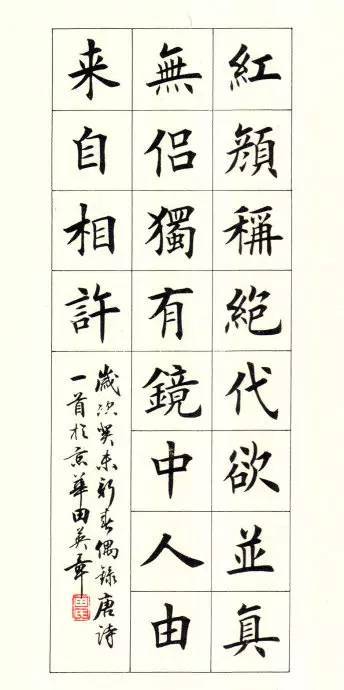 紅顔稱絕代欲並真
無侶獨有鏡中人由
来自相許
歲次癸未新春偶錄唐詩
一首於京華田英章